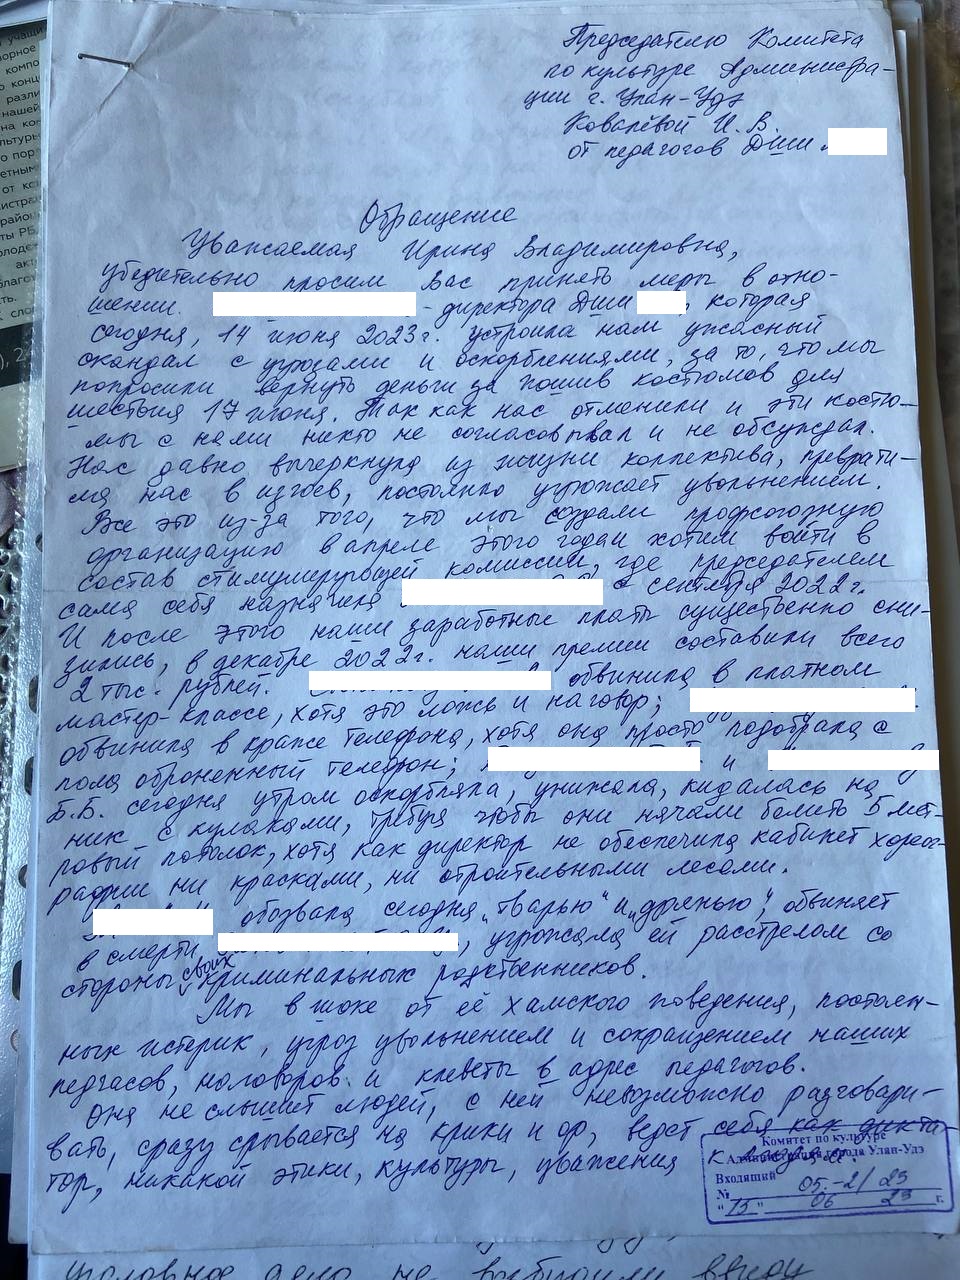 Председателю Комитета
по культуре Администра-
ции г. Улан-Удэ
Ковалёвой И. В.
от педагогов ДШИ
Обращение
Уважаемая Ирина Владимировна,
убедительно просим Вас принять меры в отно-
шении - директора ДШИ , которая
сегодня, 14 июня 2023г. устроила нам ужасный
скандал с угрозами и оскорблениями, за то, что мы
попросили вернуть деньги за пошив костюмов для
шествия 17 июня. Так как нас отменили и эти костю-
мы с нами никто не согласовывал и не обсуждал.
Нас давно вычеркнула из жизни коллектива, преврати-
ла нас в изгоев, постоянно угрожает увольнением.
Все это из-за того, что мы создали профсоюзную
организацию в апреле этого года и хотим войти в
состав стимулирующей комиссии, где председателем
сама себя назначила с сентября 2022г.
И после этого наши заработные платы существенно сни-
зились, в декабре 2022г. наши премии составили всего
2 тыс. рублей. обвинила в платном
мастер-классе, хотя это ложь и наговор;
обвинила в краже телефона, хотя она просто подобрала с
пола оброненный телефон; и
Б.Б. сегодня утром оскорбляла, унижала, кидалась на
них с кулаками, требуя чтобы они начали белить 5 мет-
ровый потолок, хотя как директор не обеспечила кабинет хореог-
рафии ни красками, ни строительными лесами.
обозвала сегодня „тварью" и „дрянью", обвиняет
в смерти , угрожала ей расстрелом со
стороны своих криминальных родственников.
Мы в шоке от её хамского поведения, постоян-
ных истерик, угроз увольнением и сокращением наших
педчасов, наговоров и клеветы в адрес педагогов.
Она не слышит людей, с ней невозможно разговари-
вать, сразу срывается на крики и ор, ведет себя как дикта-
тор, никакой этики, культуры, уважения к людям.
Комитет по культуре
Администрации города Улан-Удэ
Входящий
№ 05-2/23
"15" 06 23 г.
уголовное дело не возбудили ввиду